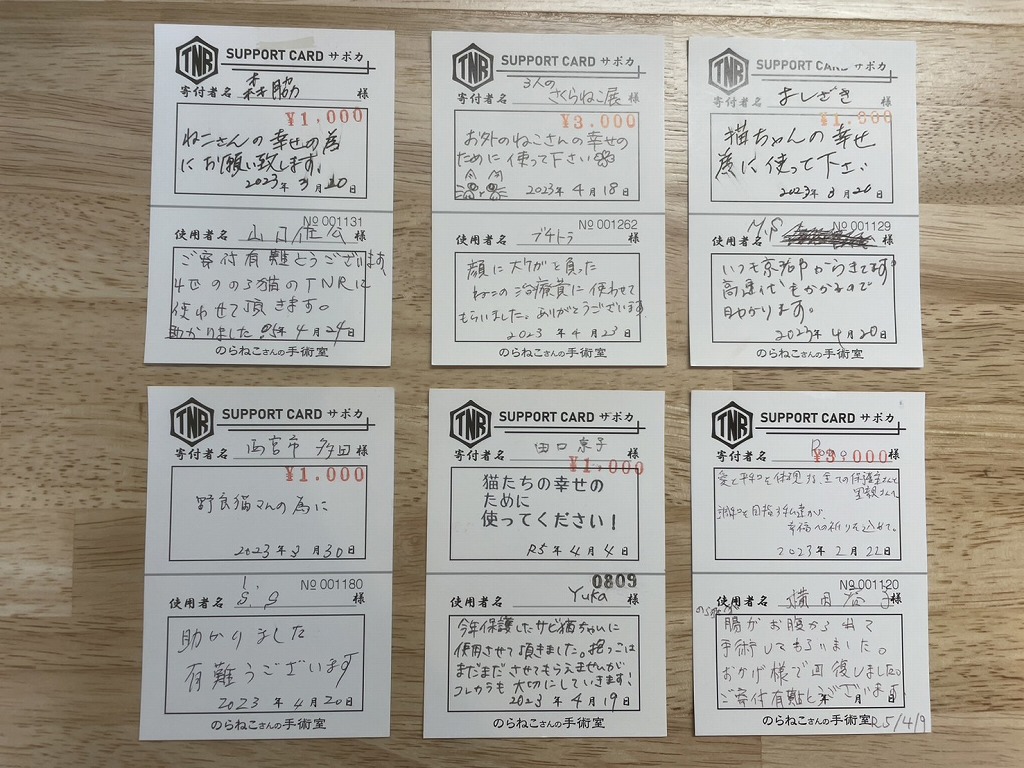 TNR SUPPORT CARD サポカ
寄付者名 森脇 様
¥1,000
ねこさんの幸せの為
にお願い致します。
2023年3月20日
No 001131
使用者名 山口 様
ご寄付有難とうございます。
4匹ののら猫のTNRに
使わせて頂きます。
助かりました。R5年4月24日
のらねこさんの手術室
TNR SUPPORT CARD サポカ
3人の
寄付者名 さくらねこ展 様
¥3,000
お外のねこさんの幸せの
ために使って下さい
2023年4月18日
No 001262
使用者名 ブチトラ 様
顔に大ケガを負った
ねこの治療費に使わせて
もらいました。ありがとうございます。
2023年4月23日
のらねこさんの手術室
TNR SUPPORT CARD サポカ
寄付者名 よしざき 様
¥1,000
猫ちゃんの幸せ
為に使って下さい
2023年3月26日
No 001129
使用者名 M.P 様
いつも京都市からきてます。
高速代もかかるので
助かります。
2023年4月20日
のらねこさんの手術室
TNR SUPPORT CARD サポカ
寄付者名 西宮市 多田 様
¥1,000
野良猫さんの為に
2023年3月30日
No 001180
使用者名 様
助かりました
有難うございます
2023年4月20日
のらねこさんの手術室
TNR SUPPORT CARD サポカ
寄付者名 田口京子 様
¥1,000
猫たちの幸せの
ために
使ってください!
R5年4月4日
0809
使用者名 Yuka 様
今年保護したサビ猫ちゃんに
使用させて頂きました。抱っこは
まだまださせてもらえませんが
コレカラも大切にしていきます!
2023年4月19日
のらねこさんの手術室
TNR SUPPORT CARD サポカ
寄付者名 様
¥3,000
愛と平和を体現する、全ての保護主さんと
里親さんへ
調和を目指す私達から
幸福への祈りを込めて。
2023年2月22日
No 001120
使用者名 横田 子様
腸がお腹から出て
手術してもらいました。
おかげ様で回復しました。
ご寄付有難とうございます。
年 月 日
のらねこさんの手術室 R5/4/9